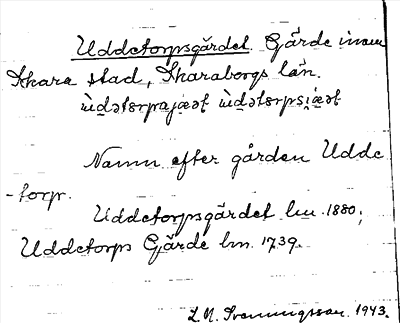 Uddetorpsgärdet. Gärde inom
Skara stad, Skaraborgs län.
Namn efter gården Udde
-torp.
Uddetorpsgärdet lm. 1880;
Uddetorps Gärde lm. 1739.
L. N. Svenningsson. 1943.